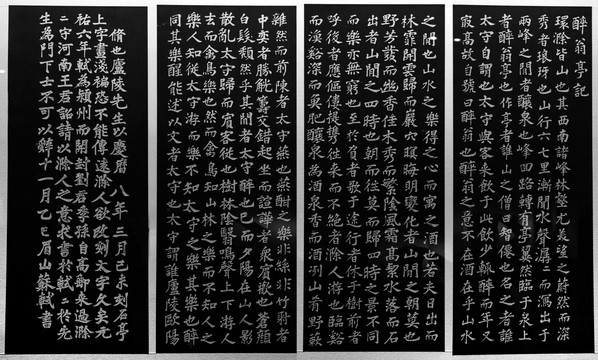 醉翁亭記
環滁皆山也其西南諸峰林壑尤美望之蔚然而深
秀者琅琊也山行六七里漸聞水聲潺二而瀉出于
兩峰之間者釀泉也峰回路轉有亭翼然臨于泉上
者醉翁亭也作亭者誰山之僧曰智僊也名之者誰
太守自謂也太守與客來飲于此飲少輒醉而年又
最高故自號曰醉翁也醉翁之意不在酒在乎山水
之間也山水之樂得之心而寓之酒也若夫日出而
林霏開雲歸而巖穴暝晦明變化者山間之朝莫也
野芳發而幽香佳木秀而繁陰風霜高絜水落而石
出者山間之四時也朝而往莫而歸四時之景不同
而樂亦無窮也至於負者歌于塗行者休于樹前者
呼後者應傴僂提攜往來而不絕者滁人游也臨谿
而漁谿深而魚肥釀泉為酒泉香而酒冽山肴野蔌
雜然而前陳者太守燕也燕酣之樂非絲非竹射者
中奕者勝觥籌交錯起坐而諠譁者衆賓歡也蒼顏
白髮頹乎其間者太守醉也已而夕陽在山人影
散亂太守歸而賓客從也樹林陰翳鳴聲上下游人
去而禽鳥樂也然而禽鳥知山林之樂而不知人之
樂人知從太守游而樂不知太守之樂其樂也醉
同其樂醒能述以文者太守也太守謂誰廬陵歐陽
脩也廬陵先生以慶曆八年三月己未刻石亭
上字畫淺褊恐不能傳遠滁人欲改刻大字久矣元
祐六年軾為潁州而開封劉君季孫自高郵來過滁
二守河南王君詔請以滁人之意求書於軾二於先
生為門下士不可以辭十一月乙巳眉山蘇軾書